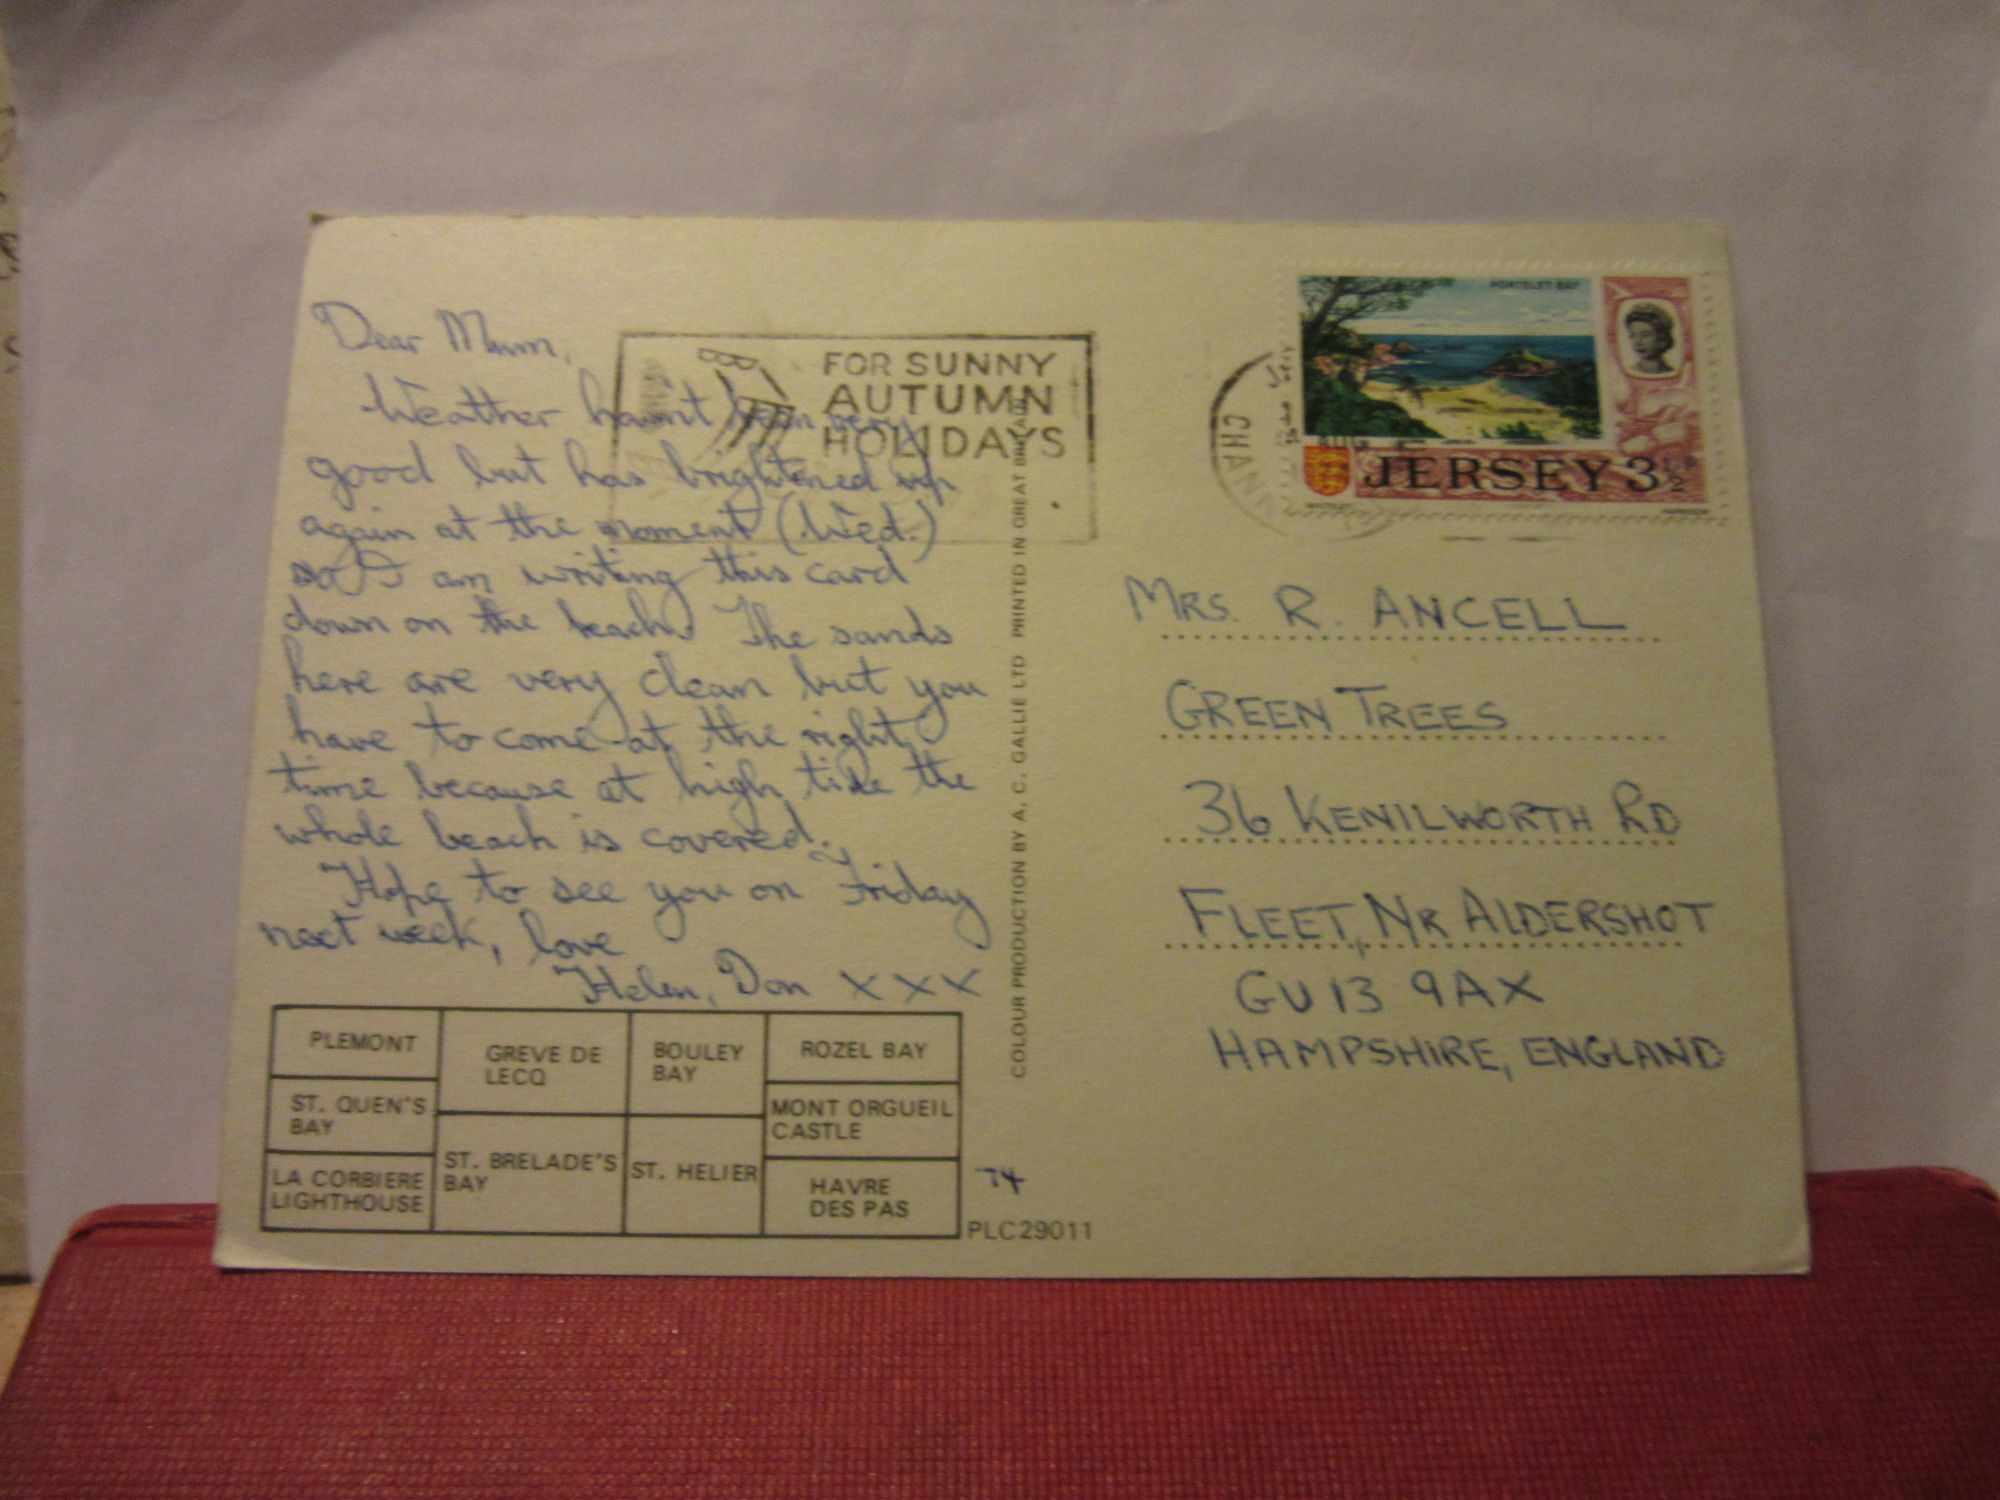 Dear Mum,
Weather hasnt been very
good but has brightened up
again at the moment (Wed.)
so I am writing this card
down on the beach. The sands
here are very clean but you
have to come at the right
time because at high tide the
whole beach is covered.
Hope to see you on Friday
next week, love
Helen, Don XXX
FOR SUNNY
AUTUMN
HOLIDAYS
PLEMONT
GREVE DE
LECQ
BOULEY
BAY
ROZEL BAY
ST. QUEN'S
BAY
MONT ORGUEIL
CASTLE
LA CORBIERE
LIGHTHOUSE
ST. BRELADE'S
BAY
ST. HELIER
HAVRE
DES PAS
74
PLC29011
COLOUR PRODUCTION BY A. C. GALLIE LTD PRINTED IN GREAT BRITAIN
PORTELET BAY
JERSEY 3½P
AUG
MRS. R. ANCELL
GREEN TREES
36 KENILWORTH RD
FLEET, NR ALDERSHOT
GU13 9AX
HAMPSHIRE, ENGLAND